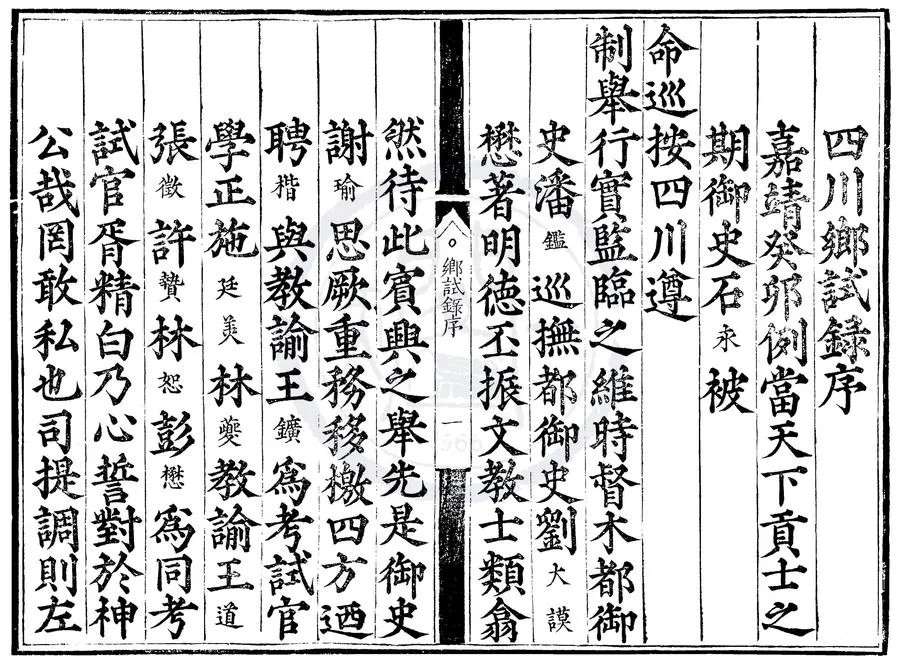 四川鄉試録序
嘉靖癸卯例當天下貢士之
期御史石永被
命巡按四川遵
制舉行實監臨之維時督木都御
史潘鑑巡撫都御史劉大謨
懋著明德丕振文教士類翕
鄉試録序 一
然待此賓興之舉先是御史
謝瑜思厥重務移檄四方迺
聘楷與教諭王鑛爲考試官
學正施廷美林夔教諭王道
張徵許贄林恕彭懋爲同考
試官胥精白乃心誓對於神
公哉罔敢私也司提調則左